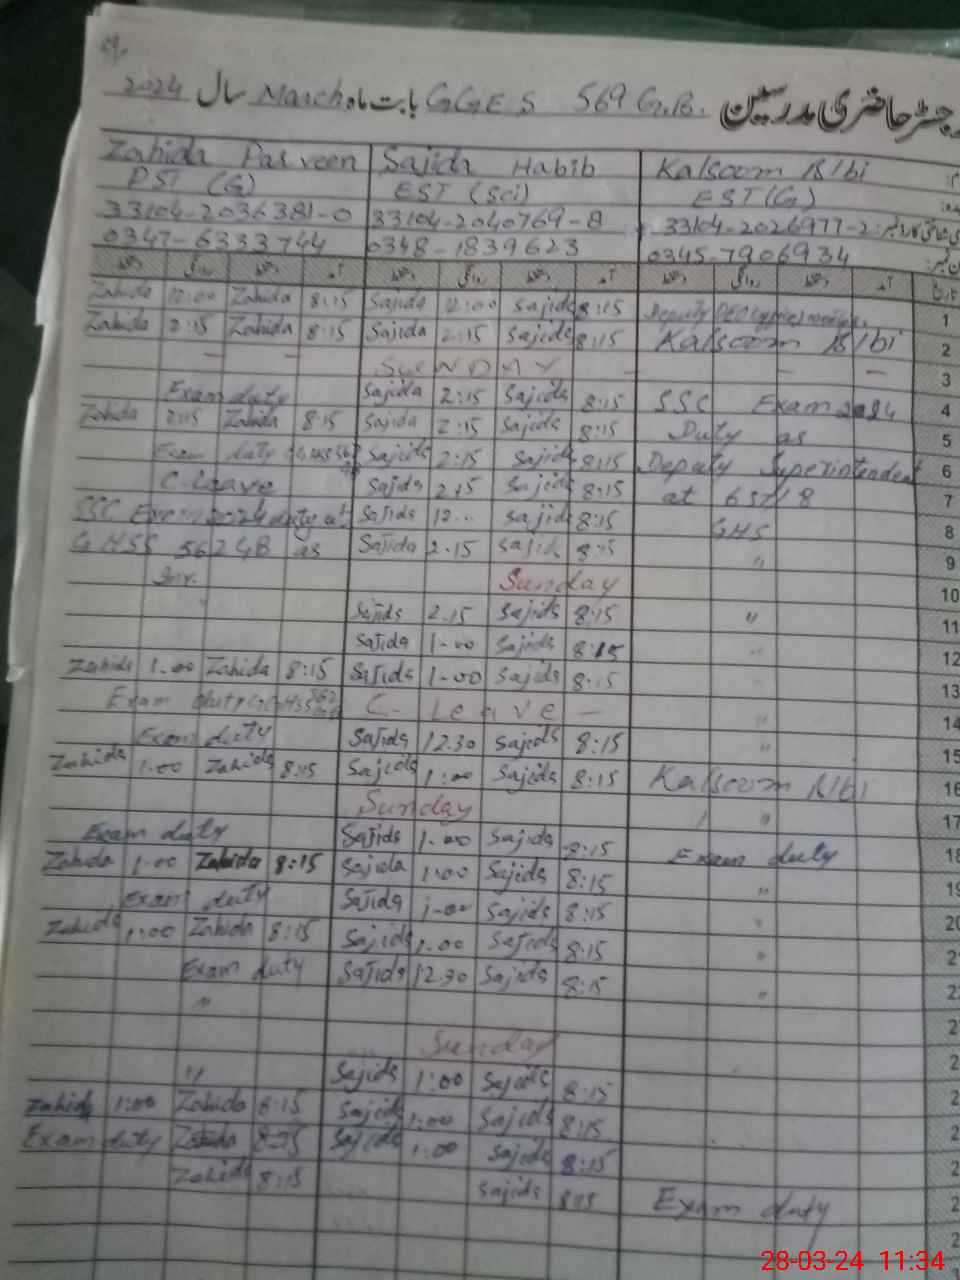 رجسٹر حاضری مدرسین G.G.E.S 569 G.B. بابت ماہ March سال 2024
Zahida Parveen Sajida Habib Kalsoom Bibi
PST (G) EST (Sci) EST (G)
33104-2036381-0 33104-2040769-8 33104-2026977-2
0347-6333744 0348-1839623 0345-7906934
Zahida 12:00 Zahida 8:15 Sajida 12:00 Sajida 8:15 Deputy DEO 1
Zahida 2:15 Zahida 8:15 Sajida 2:15 Sajida 8:15 Kalsoom Bibi 2
SUNDAY 3
Exam duty Sajida 2:15 Sajida 8:15 SSC Exam 2024 4
Zahida 2:15 Zahida 8:15 Sajida 2:15 Sajida 8:15 Duty as 5
Exam duty Sajida 2:15 Sajida 8:15 Deputy Superintendent 6
C. Leave Sajida 2:15 Sajida 8:15 at 657/8 7
SSC Exam 2024 duty at Sajida 12... Sajida 8:15 GHS 8
GHSS 562 GB as Sajida 2.15 Sajida 8:15 " 9
Inv. Sunday 10
" Sajida 2.15 Sajida 8:15 " 11
Sajida 1-00 Sajida 8:15 " 12
Zahida 1.00 Zahida 8:15 Sajida 1-00 Sajida 8:15 " 13
Exam duty GGHSS 562 C. Leave - " 14
Exam duty Sajida 12.30 Sajida 8:15 " 15
Zahida 1.00 Zahida 8:15 Sajida 1:00 Sajida 8:15 Kalsoom Bibi 16
Sunday " 17
Exam duty Sajida 1-00 Sajida 8:15 Exam duty 18
Zahida 1.00 Zahida 8:15 Sajida 1:00 Sajida 8:15 " 19
Exam duty Sajida 1-00 Sajida 8:15 " 20
Zahida 1:00 Zahida 8:15 Sajida 1.00 Sajida 8:15 " 2
Exam duty Sajida 12.30 Sajida 8:15 " 2
" 2
Sunday 2
" Sajida 1:00 Sajida 8:15 2
Zahida 1:00 Zahida 8:15 Sajida 1:00 Sajida 8:15 2
Exam duty Zahida 8:15 Sajida 1:00 Sajida 8:15 2
Zahida 8:15 Sajida 8:15 Exam duty 2
28-03-24 11:34